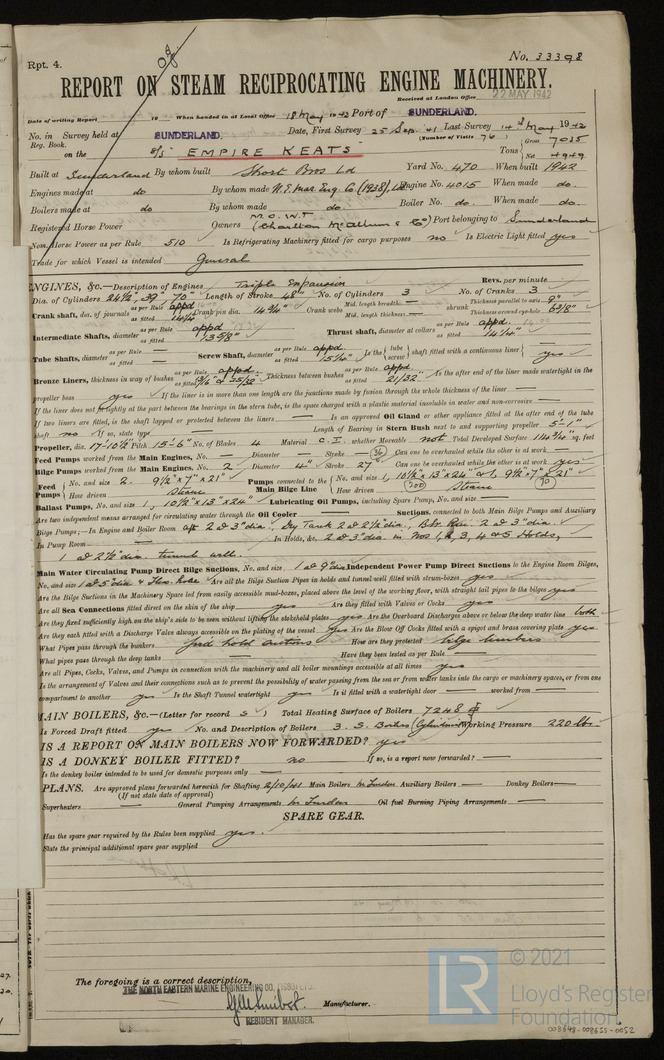 Rpt. 4.
No. 33398
REPORT ON STEAM RECIPROCATING ENGINE MACHINERY.
Received at London Office 22 MAY 1942
Date of writing Report 19 When handed in at Local Office 18 May 1942 Port of SUNDERLAND.
No. in Survey held at SUNDERLAND. Date, First Survey 25 Sep. 41 Last Survey 14th May 1942
Reg. Book. (Number of Visits 76)
on the S/S EMPIRE KEATS Tons Gross 7035 Net 4949
Built at Sunderland By whom built Short Bros Ld Yard No. 470 When built 1942
Engines made at do By whom made N.E. Mar. Eng. Co (1938), Ld Engine No. 4015 When made do.
Boilers made at do By whom made do. Boiler No. do. When made do.
Registered Horse Power Owners M.O.W.T. (Charlton McAllum & Co) Port belonging to Sunderland
Nom. Horse Power as per Rule 510 Is Refrigerating Machinery fitted for cargo purposes no Is Electric Light fitted yes
Trade for which Vessel is intended General
ENGINES, &c.—Description of Engines Triple Expansion Revs. per minute
Dia. of Cylinders 24½", 39", 70" Length of Stroke 48" No. of Cylinders 3 No. of Cranks 3
Crank shaft, dia. of journals as per Rule appd as fitted 14¼" Crank pin dia. 14¾" Crank webs Mid. length breadth Mid. length thickness shrunk Thickness parallel to axis 9" Thickness around eye-hole 6⅞"
Intermediate Shafts, diameter as per Rule appd as fitted 13⅝" Thrust shaft, diameter at collars as per Rule appd. as fitted 14¼"
Tube Shafts, diameter as per Rule — as fitted — Screw Shaft, diameter as per Rule appd as fitted 15¼" Is the tube screw shaft fitted with a continuous liner yes
Bronze Liners, thickness in way of bushes as per Rule appd. as fitted Thickness between bushes as per Rule appd. as fitted 21/32" Is the after end of the liner made watertight in the
propeller boss yes If the liner is in more than one length are the junctions made by fusion through the whole thickness of the liner —
If the liner does not fit tightly at the part between the bearings in the stern tube, is the space charged with a plastic material insoluble in water and non-corrosive —
If two liners are fitted, is the shaft lapped or protected between the liners — Is an approved Oil Gland or other appliance fitted at the after end of the tube
shaft no If so, state type Length of Bearing in Stern Bush next to and supporting propeller 5'-1"
Propeller, dia. 17'-10½" Pitch 15'-6" No. of Blades 4 Material C.I. whether Moveable not Total Developed Surface sq. feet
Feed Pumps worked from the Main Engines, No. — Diameter — Stroke — Can one be overhauled while the other is at work —
Bilge Pumps worked from the Main Engines, No. 2 Diameter 4" Stroke 27" Can one be overhauled while the other is at work yes
Feed Pumps No. and size 2. 9½" x 7" x 21" How driven Steam Pumps connected to the Main Bilge Line No. and size 1, 10½" x 13" x 24" & 1, 9½" x 7" x 21" How driven Steam
Ballast Pumps, No. and size 1, 10½" x 13" x 24" Lubricating Oil Pumps, including Spare Pump, No. and size —
Are two independent means arranged for circulating water through the Oil Cooler Suctions, connected to both Main Bilge Pumps and Auxiliary
Bilge Pumps;—In Engine and Boiler Room aft 2 @ 3" dia. Dry Tank 2 @ 2½" dia., 2 @ 3" dia.
In Pump Room — In Holds, &c. 2 @ 3" dia. in Nos 1, 2, 3, 4 & 5 Holds,
1 @ 2½" dia. tunnel well.
Main Water Circulating Pump Direct Bilge Suctions, No. and size 1 @ 9" dia Independent Power Pump Direct Suctions to the Engine Room Bilges,
No. and size 1 @ 5" dia Are all the Bilge Suction Pipes in holds and tunnel well fitted with strum-boxes yes
Are the Bilge Suctions in the Machinery Space led from easily accessible mud-boxes, placed above the level of the working floor, with straight tail pipes to the bilges yes
Are all Sea Connections fitted direct on the skin of the ship yes Are they fitted with Valves or Cocks yes
Are they fixed sufficiently high on the ship's side to be seen without lifting the stokehold plates yes Are the Overboard Discharges above or below the deep water line both
Are they each fitted with a Discharge Valve always accessible on the plating of the vessel yes Are the Blow Off Cocks fitted with a spigot and brass covering plate yes
What Pipes pass through the bunkers Fwd hold suctions How are they protected bilge limbers
What pipes pass through the deep tanks — Have they been tested as per Rule —
Are all Pipes, Cocks, Valves, and Pumps in connection with the machinery and all boiler mountings accessible at all times yes
Is the arrangement of Valves and their connections such as to prevent the possibility of water passing from the sea or from water tanks into the cargo or machinery spaces, or from one
compartment to another yes Is the Shaft Tunnel watertight yes Is it fitted with a watertight door — worked from —
MAIN BOILERS, &c.—(Letter for record S) Total Heating Surface of Boilers 7248
Is Forced Draft fitted yes No. and Description of Boilers 3. S. Boilers (Cylindrical) Working Pressure 220 lbs.
IS A REPORT ON MAIN BOILERS NOW FORWARDED? yes
IS A DONKEY BOILER FITTED? no If so, is a report now forwarded? —
Is the donkey boiler intended to be used for domestic purposes only —
PLANS. Are approved plans forwarded herewith for Shafting 2/10/41 Main Boilers in London Auxiliary Boilers — Donkey Boilers —
(If not state date of approval)
Superheaters — General Pumping Arrangements in London Oil fuel Burning Piping Arrangements —
SPARE GEAR.
Has the spare gear required by the Rules been supplied yes.
State the principal additional spare gear supplied
The foregoing is a correct description,
THE NORTH EASTERN MARINE ENGINEERING CO. (1938) LTD.
Manufacturer.
RESIDENT MANAGER.
© 2021
LR Lloyd's Register
Foundation
008648-008655-0052